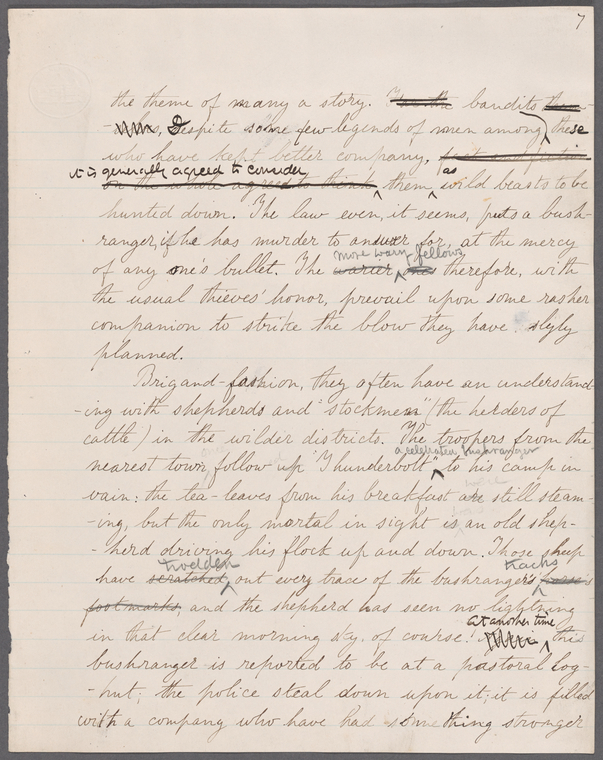 7
the theme of many a story. For the bandits them-
-selves, Despite some few legends of men among these
who have kept better company, fact and fiction
it is generally agreed to consider as
on the whole agree to think them wild beasts to be
hunted down. The law even, it seems, puts a bush-
ranger, if he has murder to answer for, at the mercy
more wary fellows
of any one's bullet. The warier ones therefore, with
the usual thieves' honor, prevail upon some rasher
companion to strike the blow they have slyly
planned.
Brigand-fashion, they often have an understand-
-ing with shepherds and "stockmen" (the herders of
cattle) in the wilder districts. The troopers from the
a celebrated bushranger
nearest town follow up "Thunderbolt" to his camp in
vain: the tea-leaves from his breakfast are still steam-
-ing, but the only mortal in sight is an old shep-
-herd driving his flock up and down. Those sheep
trodden tracks
have scratched out every trace of the bushranger's horse's
foot marks, and the shepherd has seen no lightning
in that clear morning sky, of course!
at another time
this
bushranger is reported to be at a pastoral log-
-hut; the police steal down upon it; it is filled
with a company who have had something stronger